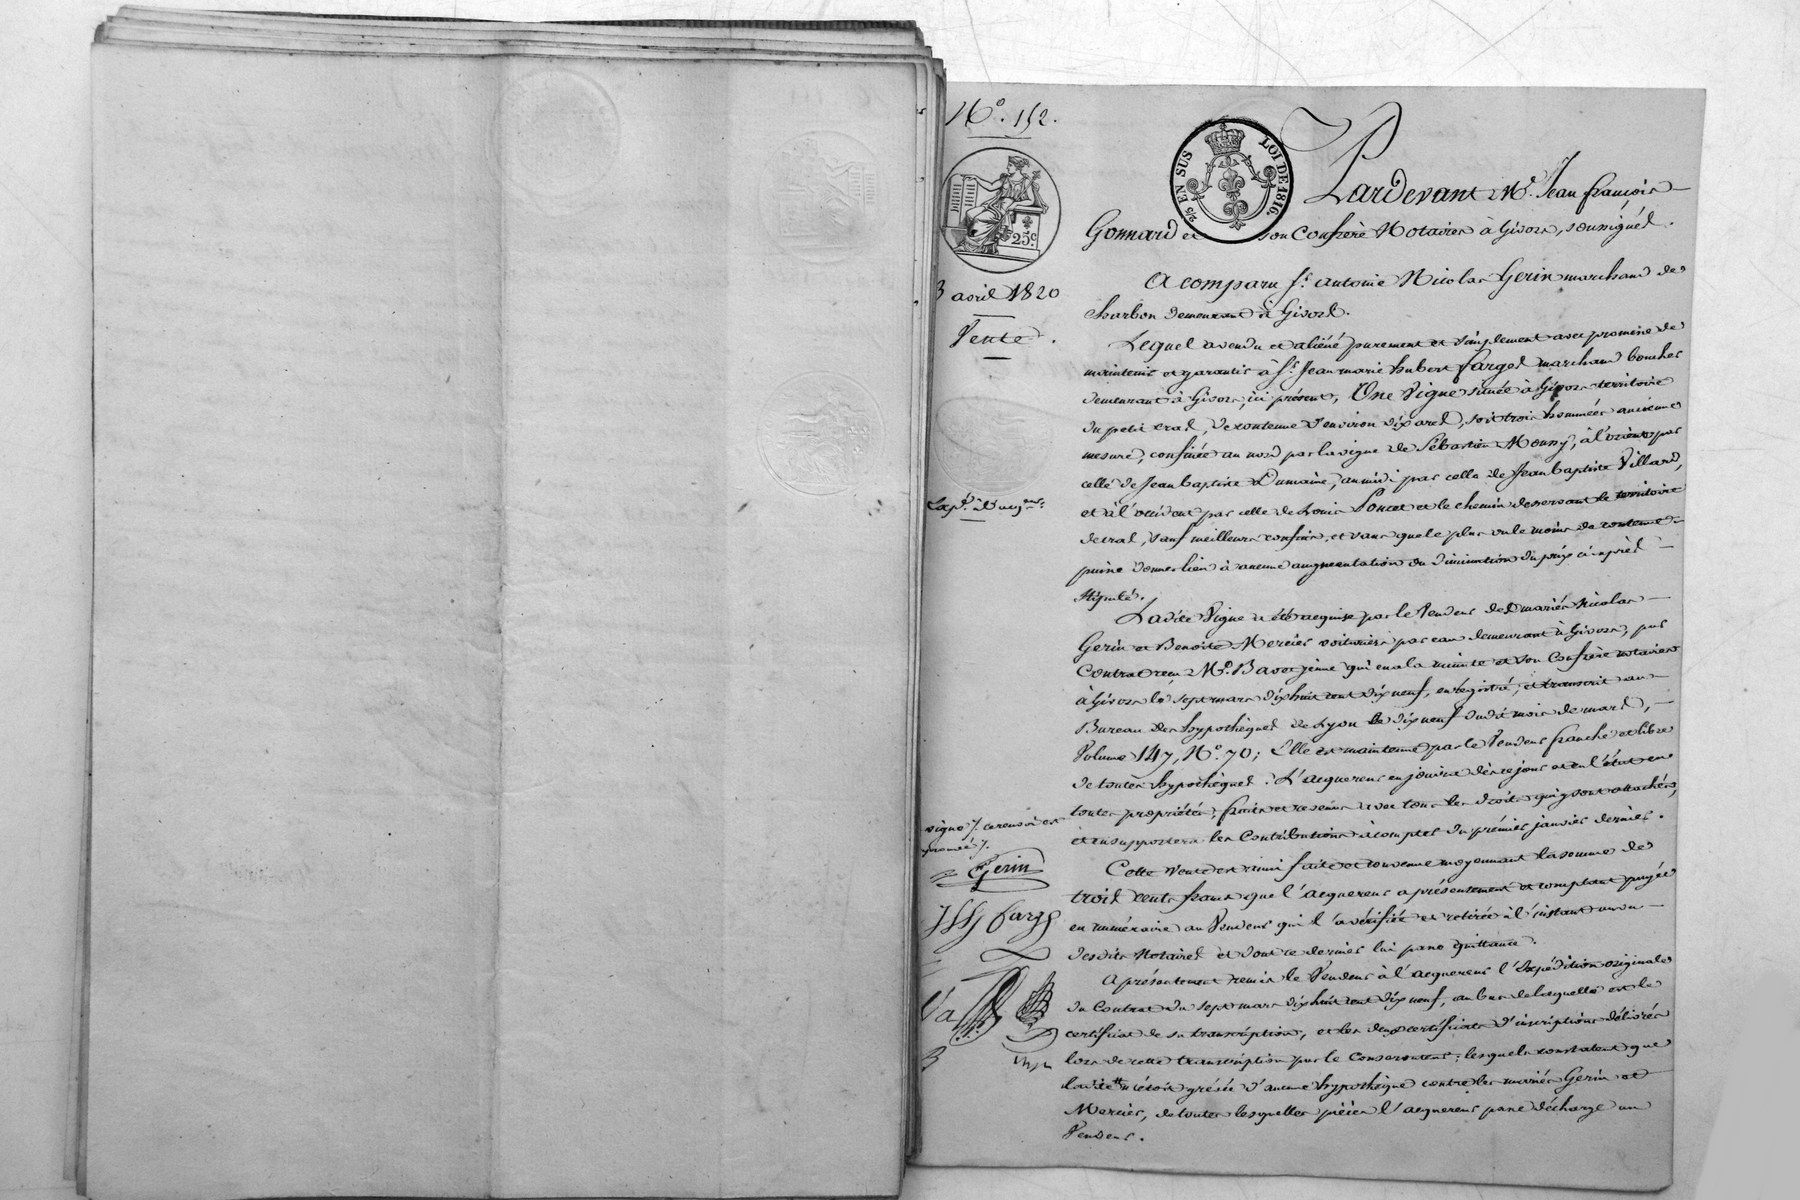 N.º 152.
2/5 EN SUS LOI DE 1816.
25c
3 avril 1820
Vente.
Pardevant Me. Jean françois
Gonnard et son Confrère Notaires à Givors, soussignés.
A comparu sr. antoine Nicolas Gerin marchand de
charbon demeurant à Givors.
Lequel a vendu et aliéné purement et simplement avec promesse de
maintenir et garantir à Sr. Jean marie hubert farges marchand boucher
demeurant à Givors, ici présent, Une Vigne située à Givors territoire
du petit cral, de contenue d'environ dix ares, soit trois hommées ancienne
mesure, confinée au nord par la vigne de Sébastien Mouny, à l'orient par
celle de Jean baptiste Dumaine, au midi par celle de Jean baptiste Villard,
et à l'occident par celle de Louis Poncet et le chemin desservant le territoire
de cral, sauf meilleurs confins, et sans que le plus ou le moins de contenue
puisse donner lieu à aucune augmentation ou diminution du prix ci-après
stipulé.
Ladite Vigne a été acquise par le Vendeur des mariés Nicolas
Gerin et Benoite Mercier voituriers par eau demeurant à Givors, par
Contrat reçu Me. Bavozienne qui en a la minute et son Confrère notaires
à Givors le sept mars dix huit cent dix neuf, enregistré, et transcrit au
Bureau des hypothèques de Lyon le dix neuf dudit mois de mars,
Volume 147, N.º 70; Elle est maintenue par le Vendeur franche et libre
de toutes hypothèques. L'acquereur en jouira dès ce jour et en l'état en
toute propriété, fruits et revenus avec tous les droits qui y sont attachés,
et en supportera les Contributions à compter du premier janvier dernier.
Cette Vente est ainsi faite et convenue moyennant la somme de
trois cents francs que l'acquereur a présentement et comptant payée
en numéraire au Vendeur qui l'a vérifiée et retirée à l'instant au vu
desdits Notaires et dont ce dernier lui passe quittance.
A présentement remis le Vendeur à l'acquereur l'Expédition originale
du Contrat du sept mars dix huit cent dix neuf, au bas de laquelle est le
certificat de sa transcription, et les deux certificats d'inscriptions délivrés
lors de cette transcription par le Conservateur, lesquels constatent que
ladite # n'étoit grévée d'aucune hypothèque contre les mariés Gerin et
Mercier, de toutes lesquelles pièces l'acquereur passe décharge au
Vendeur.
vigne /. ce renvoi est
approuvé /.
Gerin